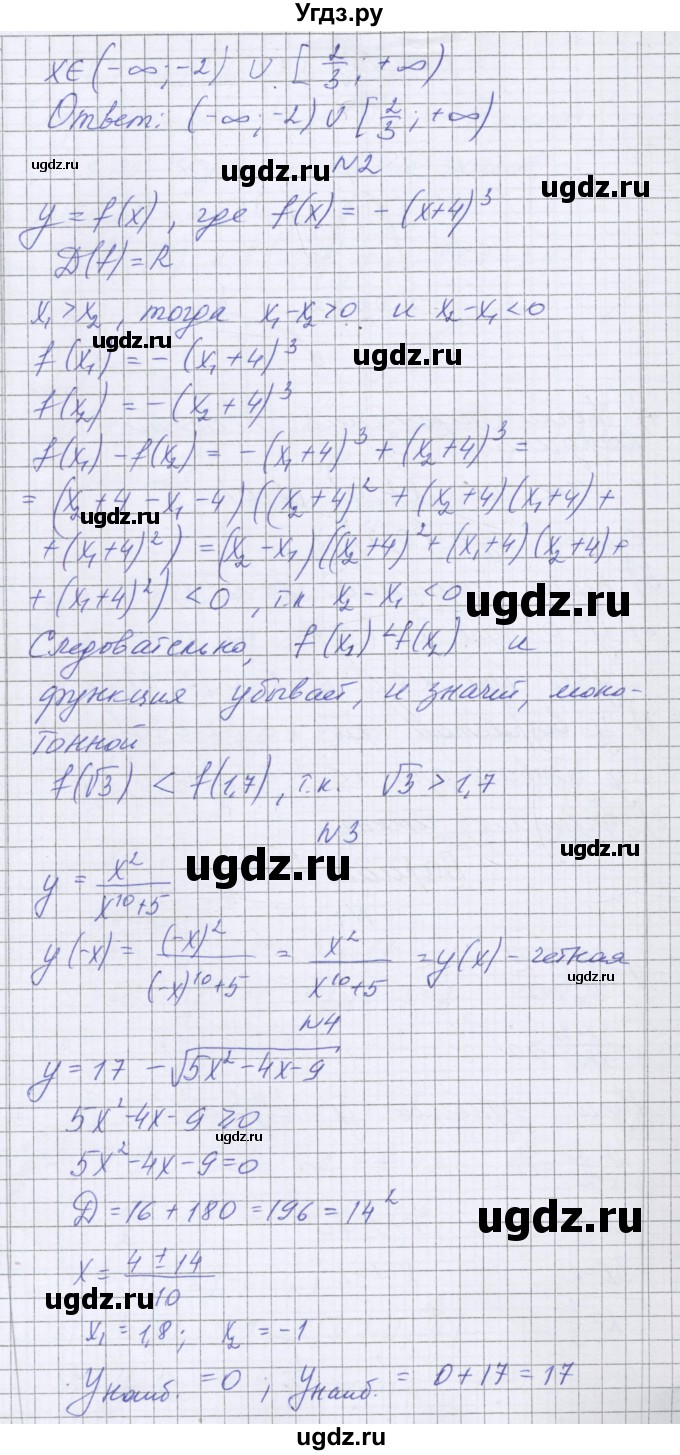 Угдз.ру
x∈(-∞;-2) ∪ [2/3;+∞)
Ответ: (-∞;-2)∪[2/3;+∞)
ugdz.ru
ugdz.ru
N2
ugdz.ru
y=f(x), где f(x)=-(x+4)³
D(f)=R
x₁>x₂, тогда x₁-x₂>0. и x₂-x₁<0
ugdz.ru
ugdz.ru
f(x₁)=-(x₁+4)³
f(x₂)=-(x₂+4)³
f(x₁)-f(x₂)=-(x₁+4)³+(x₂+4)³=
=(x₂+4-x₁-4)((x₂+4)²+(x₂+4)(x₁+4)+
ugdz.ru
+(x₁+4)²)=(x₂-x₁)((x₂+4)²+(x₁+4)(x₂+4)+
+(x₁+4)²)<0, т.к x₂-x₁<0
ugdz.ru
Следовательно, f(x₁)<f(x₂) и
функция убывает, и значит, моно-
тонной
f(√3)<f(1,7), т.к. √3>1,7
N3
ugdz.ru
ugdz.ru
y=x²/(x¹⁰+5)
y(-x)=(-x)²/((-x)¹⁰+5)=x²/(x¹⁰+5)=y(x)-четная
ugdz.ru
N4
y=17-√(5x²-4x-9)
5x²-4x-9≥0
ugdz.ru
5x²-4x-9=0
D=16+180=196=14²
ugdz.ru
x=(4±14)/10
ugdz.ru
x₁=1,8; x₂=-1
yнаиб.=0; yнаиб.=0+17=17
ugdz.ru